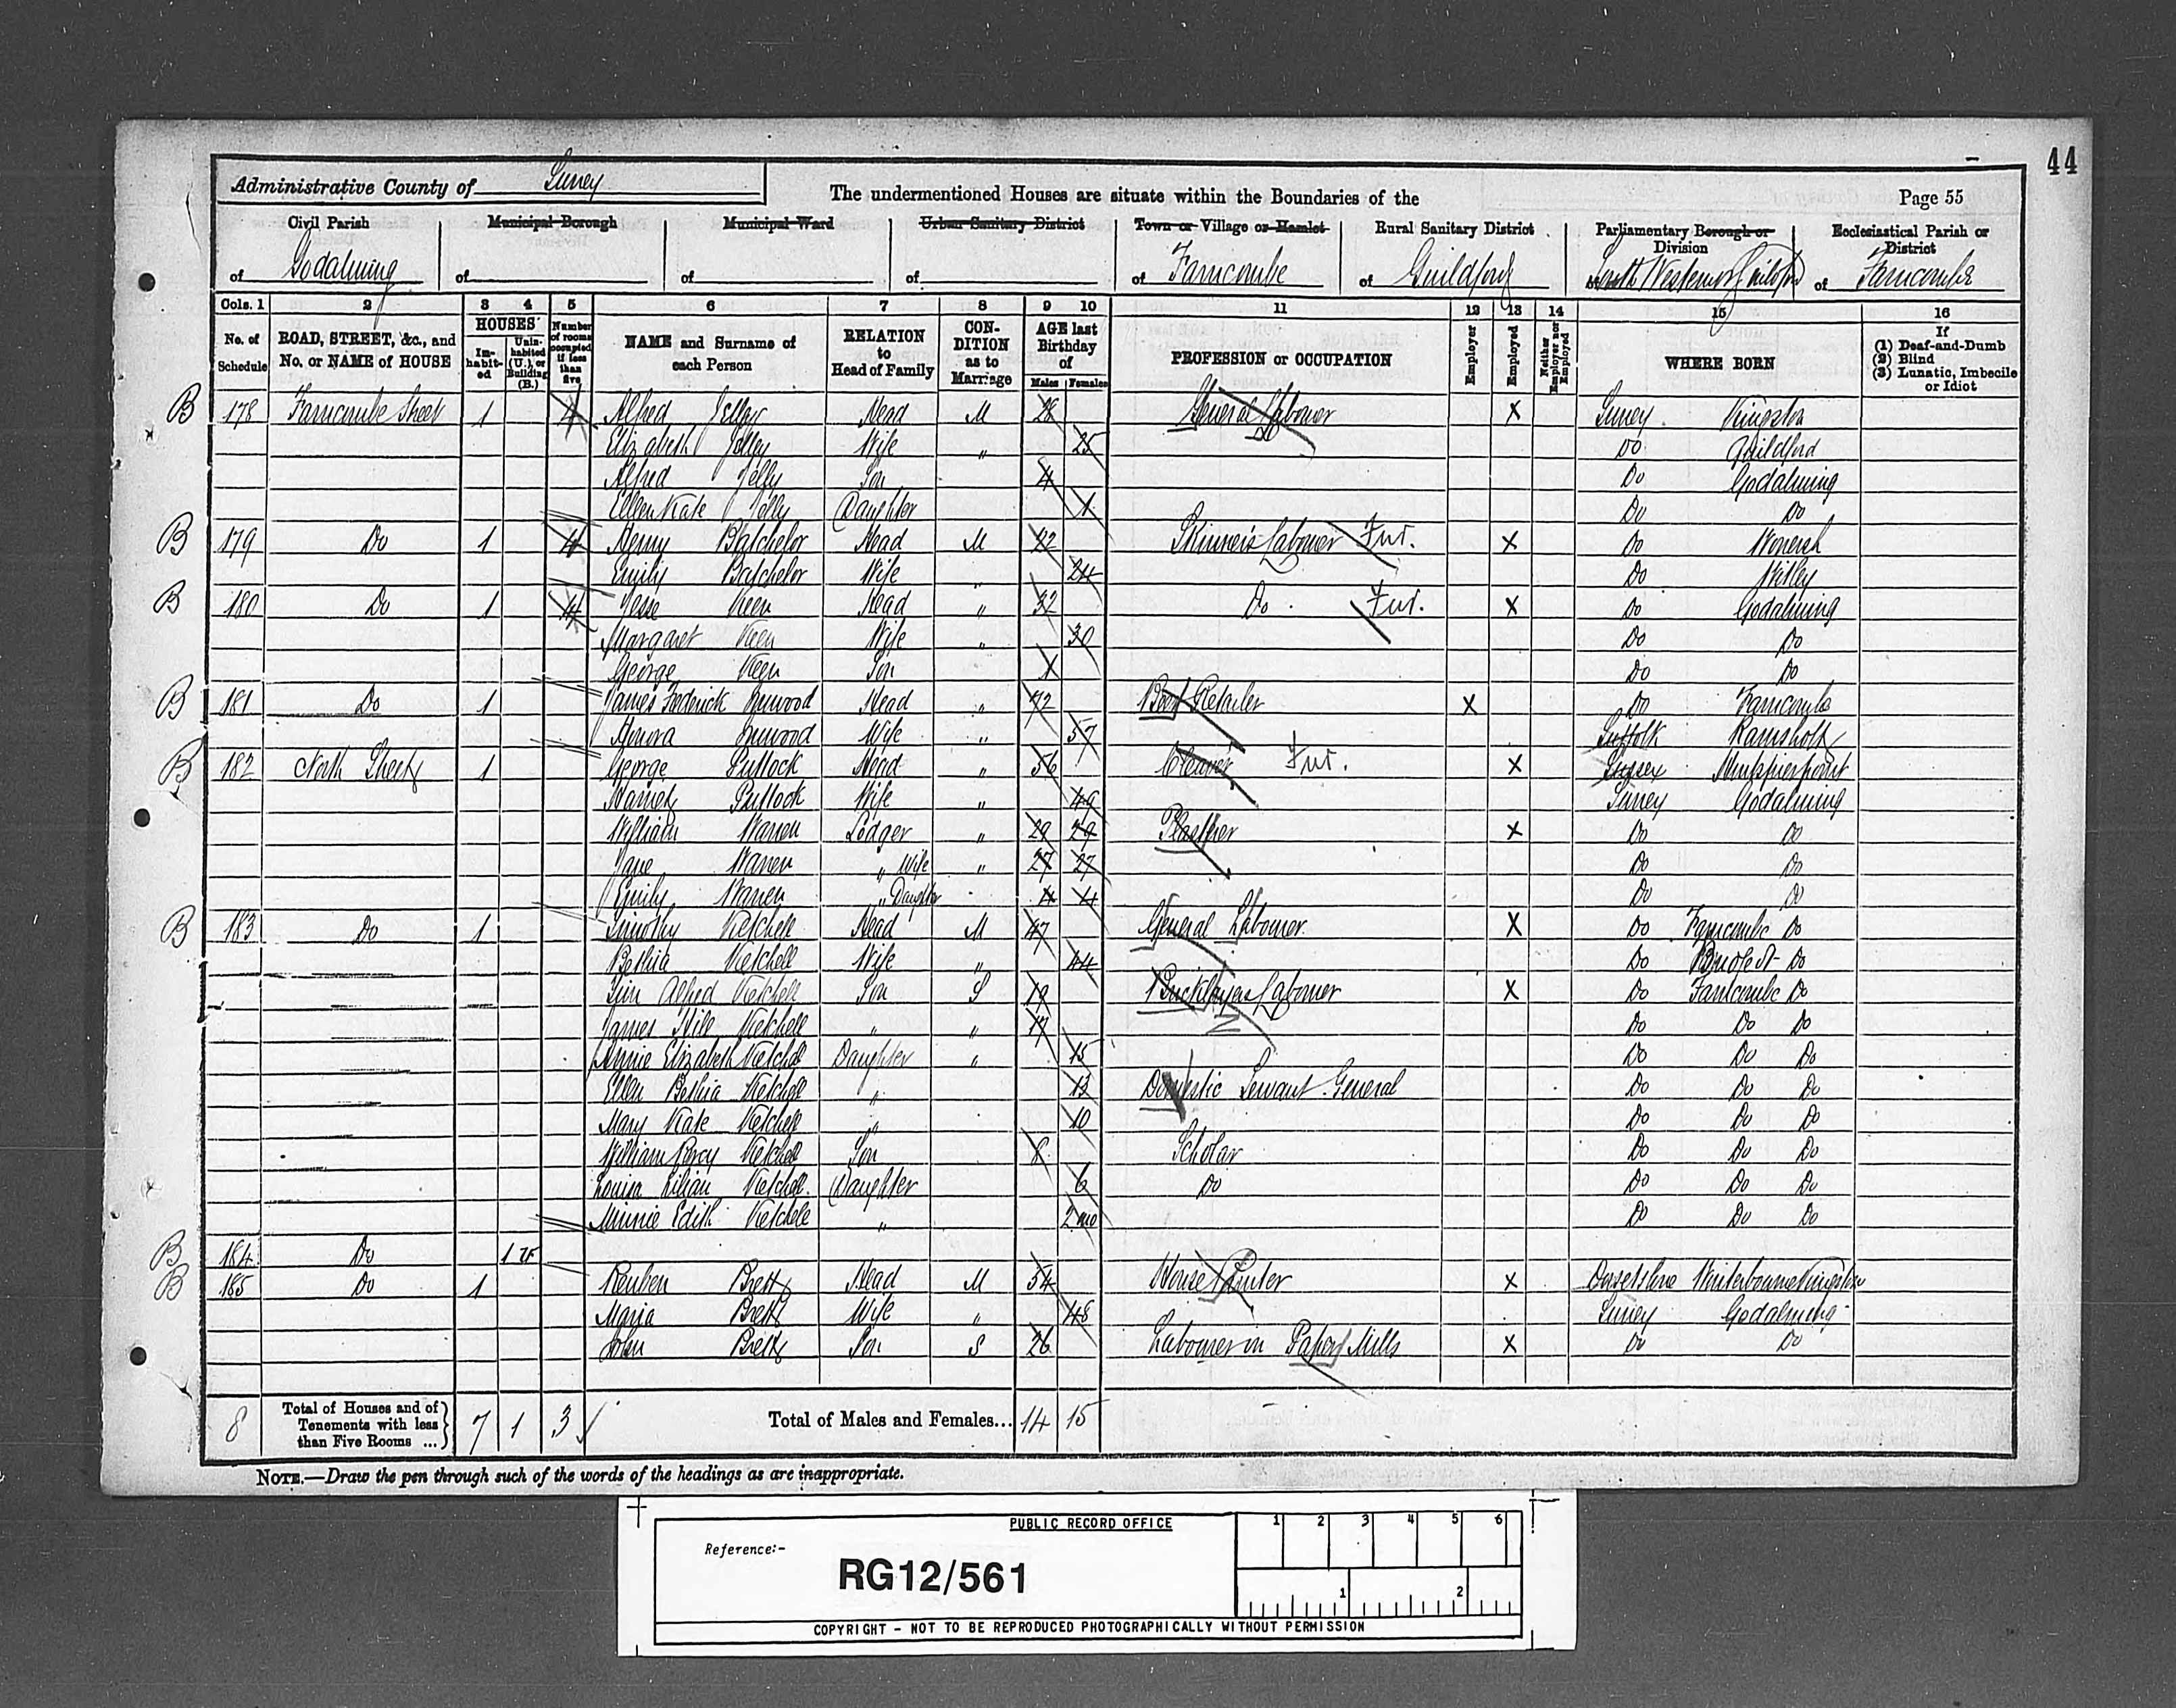 44
Administrative County of Surrey
The undermentioned Houses are situate within the Boundaries of the
Page 55
Civil Parish of Godalming
Municipal Borough of
Municipal Ward of
Urban Sanitary District of
Town or Village or Hamlet of Farncombe
Rural Sanitary District of Guildford
Parliamentary Borough or Division of South Western
Ecclesiastical Parish or District of Farncombe
Cols. 1 2 3 4 5 6 7 8 9 10 11 12 13 14 15 16
No. of Schedule
ROAD, STREET, &c., and No. or NAME of HOUSE
HOUSES
In-habit-ed
Unin-habited (U.), or Building (B.)
Number of rooms occupied if less than five
NAME and Surname of each Person
RELATION to Head of Family
CON-DITION as to Marriage
AGE last Birthday of
Males Females
PROFESSION or OCCUPATION
Employer
Employed
Neither Employer nor Employed
WHERE BORN
If (1) Deaf-and-Dumb (2) Blind (3) Lunatic, Imbecile or Idiot
B 178 Farncombe Street 1 4 Alfred Jelley Head M 28 General Labourer X Surrey Kingston
Elizabeth Jelley Wife " 25 Do Guildford
Alfred Jelly Son 4 Do Godalming
Ellen Kate Jelly Daughter 1 Do Do
B 179 Do 1 4 Henry Batchelor Head M 22 Skinner's Labourer Fur. X Do Wonersh
Emily Batchelor Wife " 24 Do Witley
B 180 Do 1 4 Jesse Keen Head " 32 Do Fur. X Do Godalming
Margaret Keen Wife " 30 Do Do
George Keen Son 1 Do Do
B 181 Do 1 James Frederick Inwood Head " 72 Retailer X Do Farncombe
Inwood Wife " 57 Suffolk Ramsholt
B 182 North Street 1 George Pullock Head " 56 Fur. X Sussex
Harriet Pullock Wife " 49 Surrey Godalming
William Warren Lodger " 29 29 Plasterer X Do Do
Jane Warren " Wife " 27 27 Do Do
Emily Warren " Daughter 4 4 Do Do
B 183 Do 1 Timothy Ketchell Head M 47 General Labourer X Do Farncombe Do
Bethia Ketchell Wife " 44 Do Do
Tim Alfred Ketchell Son S 19 Bricklayers Labourer X Do Farncombe Do
James Hill Ketchell " " 17 Do Do Do
Annie Elizabeth Ketchell Daughter " 15 Do Do Do
Ellen Bethia Ketchell " 13 Domestic Servant General Do Do Do
Mary Kate Ketchell " 10 Do Do Do
William Percy Ketchell Son 8 Scholar Do Do Do
Louisa Lilian Ketchell Daughter 6 Do Do Do Do
Minnie Edith Ketchell " 2 mo Do Do Do
B 184 Do 1
B 185 Do 1 Reuben Brett Head M 54 House Painter X Dorsetshire Winterbourne Kingston
Maria Brett Wife " 48 Surrey Godalming
John Brett Son S 26 Labourer in Paper Mills X Do Do
8 Total of Houses and of Tenements with less than Five Rooms ... 7 1 3 Total of Males and Females... 14 15
NOTE.—Draw the pen through such of the words of the headings as are inappropriate.
PUBLIC RECORD OFFICE
1 2 3 4 5 6
Reference:-
RG12/561
1 2
COPYRIGHT - NOT TO BE REPRODUCED PHOTOGRAPHICALLY WITHOUT PERMISSION